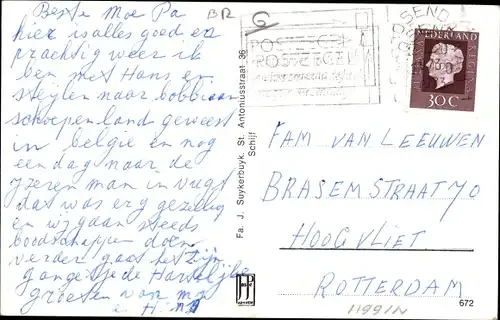 Beste Moe Pa
hier is alles goed en
prachtig weer ik
ben met Hans en
naar bobbejaan
schoepenland geweest
in belgie en nog
een dag naar de
IJzeren man in vugt
dat was erg gezellig
en wij gaan steeds
boodschappen doen
verder gaat het zijn
gangetje de Hartelijke
groeten van mij
BR
Fa. J. Suykerbuyk, St. Antoniusstraat 36
Schijf
NEDERLAND
30 C
FAM VAN LEEUWEN
BRASEMSTRAAT 70
HOOGVLIET
ROTTERDAM
672